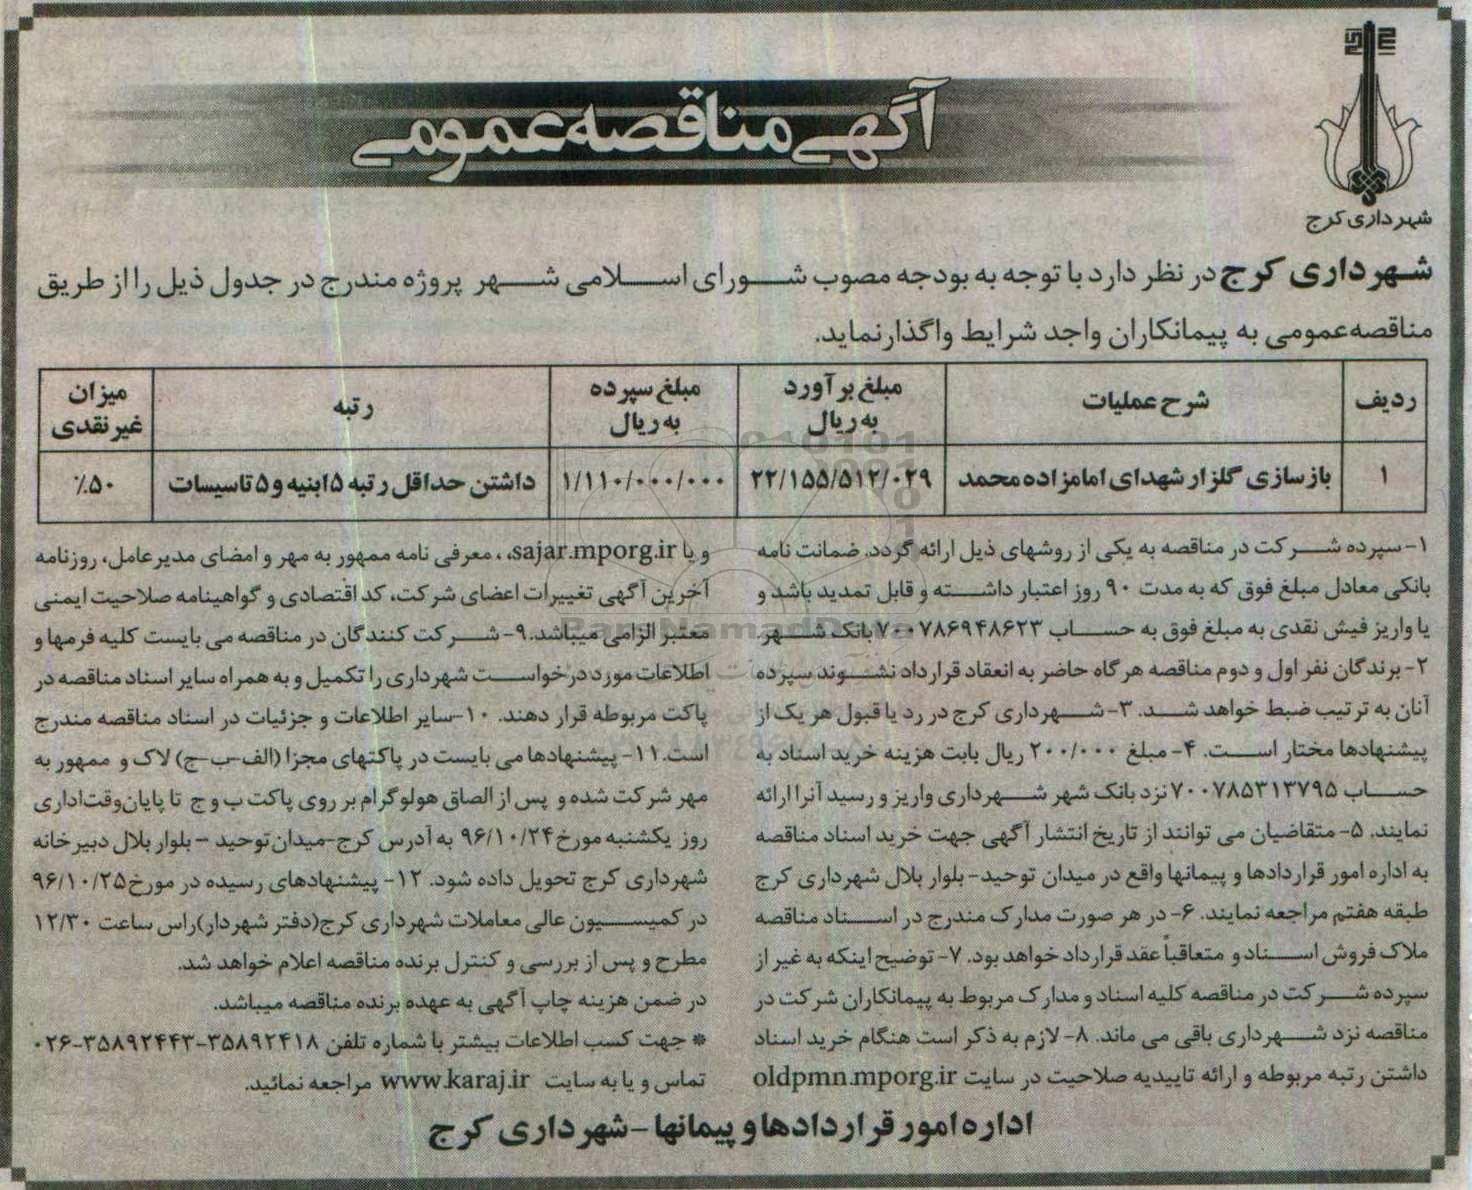 شهرداری کرج
آگهی مناقصه عمومی
شهرداری کرج در نظر دارد با توجه به بودجه مصوب شورای اسلامی شهر پروژه مندرج در جدول ذیل را از طریق
مناقصه عمومی به پیمانکاران واجد شرایط واگذار نماید.
ردیف شرح عملیات مبلغ برآورد به ریال مبلغ سپرده به ریال رتبه میزان غیر نقدی
۱ بازسازی گلزار شهدای امامزاده محمد ۲۲/۱۵۵/۵۱۲/۰۲۹ ۱/۱۱۰/۰۰۰/۰۰۰ داشتن حداقل رتبه ۵ ابنیه و ۵ تاسیسات ۵۰٪
۱- سپرده شرکت در مناقصه به یکی از روشهای ذیل ارائه گردد. ضمانت نامه
بانکی معادل مبلغ فوق که به مدت ۹۰ روز اعتبار داشته و قابل تمدید باشد و
یا واریز فیش نقدی به مبلغ فوق به حساب ۷۰۰۷۸۶۹۴۸۶۲۳ بانک شهر.
۲- برندگان نفر اول و دوم مناقصه هرگاه حاضر به انعقاد قرارداد نشوند سپرده
آنان به ترتیب ضبط خواهد شد. ۳- شهرداری کرج در رد یا قبول هر یک از
پیشنهادها مختار است. ۴- مبلغ ۲۰۰/۰۰۰ ریال بابت هزینه خرید اسناد به
حساب ۷۰۰۷۸۵۳۱۳۷۹۵ نزد بانک شهر شهرداری واریز و رسید آنرا ارائه
نمایند. ۵- متقاضیان می توانند از تاریخ انتشار آگهی جهت خرید اسناد مناقصه
به اداره امور قراردادها و پیمانها واقع در میدان توحید- بلوار بلال شهرداری کرج
طبقه هفتم مراجعه نمایند. ۶- در هر صورت مدارک مندرج در اسناد مناقصه
ملاک فروش اسناد و متعاقباً عقد قرارداد خواهد بود. ۷- توضیح اینکه به غیر از
سپرده شرکت در مناقصه کلیه اسناد و مدارک مربوط به پیمانکاران شرکت در
مناقصه نزد شهرداری باقی می ماند. ۸- لازم به ذکر است هنگام خرید اسناد
داشتن رتبه مربوطه و ارائه تاییدیه صلاحیت در سایت oldpmn.mporg.ir
و یا sajar.mporg.ir، ، معرفی نامه ممهور به مهر و امضای مدیرعامل، روزنامه
آخرین آگهی تغییرات اعضای شرکت، کد اقتصادی و گواهینامه صلاحیت ایمنی
معتبر الزامی میباشد. ۹- شرکت کنندگان در مناقصه می بایست کلیه فرمها و
اطلاعات مورد درخواست شهرداری را تکمیل و به همراه سایر اسناد مناقصه در
پاکت مربوطه قرار دهند. ۱۰- سایر اطلاعات و جزئیات در اسناد مناقصه مندرج
است. ۱۱- پیشنهادها می بایست در پاکتهای مجزا (الف-ب-ج) لاک و ممهور به
مهر شرکت شده و پس از الصاق هولوگرام بر روی پاکت ب و ج تا پایان وقت اداری
روز یکشنبه مورخ ۹۶/۱۰/۲۴ به آدرس کرج-میدان توحید - بلوار بلال دبیرخانه
شهرداری کرج تحویل داده شود. ۱۲- پیشنهادهای رسیده در مورخ ۹۶/۱۰/۲۵
در کمیسیون عالی معاملات شهرداری کرج(دفتر شهردار)راس ساعت ۱۲/۳۰
مطرح و پس از بررسی و کنترل برنده مناقصه اعلام خواهد شد.
در ضمن هزینه چاپ آگهی به عهده برنده مناقصه میباشد.
* جهت کسب اطلاعات بیشتر با شماره تلفن ۳۵۸۹۲۴۱۸-۳۵۸۹۲۴۴۳-۰۲۶
تماس و یا به سایت www.karaj.ir مراجعه نمائید.
اداره امور قراردادها و پیمانها - شهرداری کرج